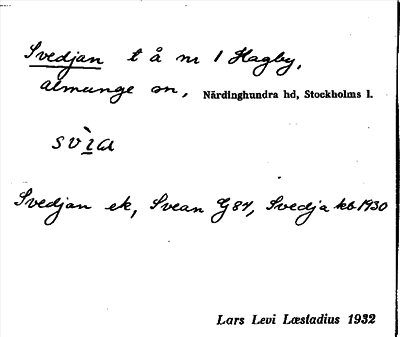 Svedjan t å nr 1 Hagby,
Almunge sn, Närdinghundra hd, Stockholms l.
svìa
Svedjan ek, Svean G 84, Svedja kb 1930
Lars Levi Læstadius 1932